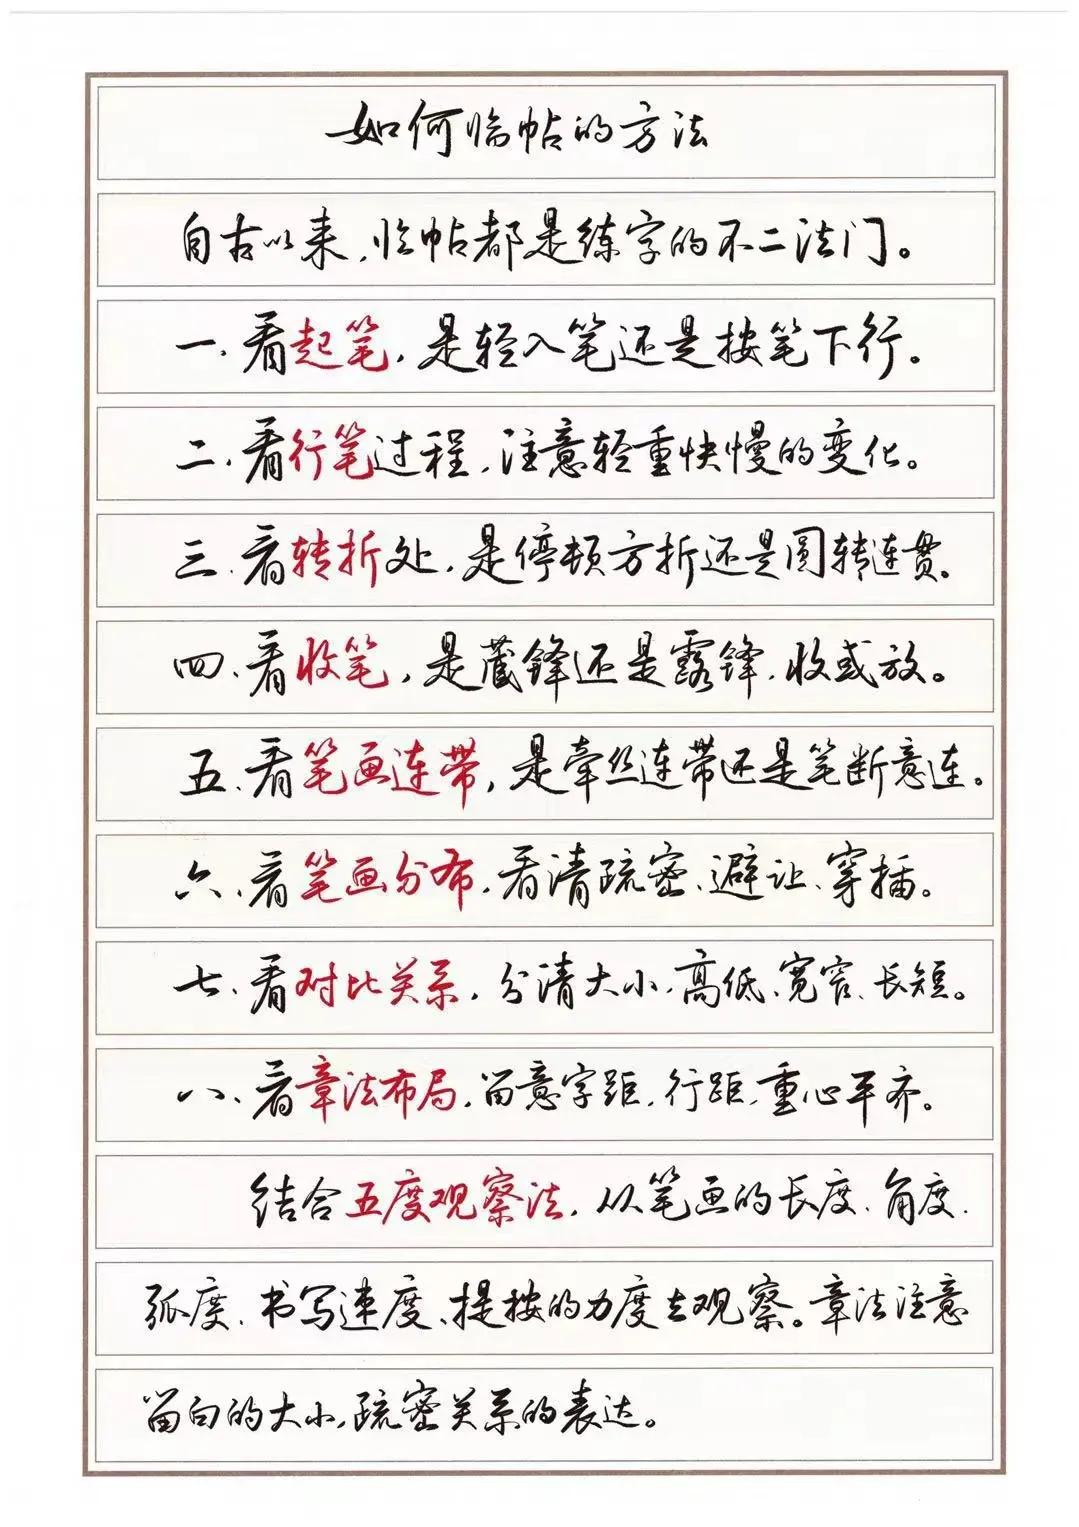 如何临帖的方法
自古以来,临帖都是练字的不二法门。
一、看起笔,是轻入笔还是按笔下行。
二、看行笔过程,注意轻重快慢的变化。
三、看转折处,是停顿方折还是圆转连贯。
四、看收笔,是藏锋还是露锋,收或放。
五、看笔画连带,是牵丝连带还是笔断意连。
六、看笔画分布,看清疏密、避让、穿插。
七、看对比关系,分清大小、高低、宽窄、长短。
八、看章法布局,留意字距、行距,重心平齐。
结合五度观察法,从笔画的长度、角度、
弧度、书写速度、提按的力度去观察。章法注意
留白的大小,疏密关系的表达。